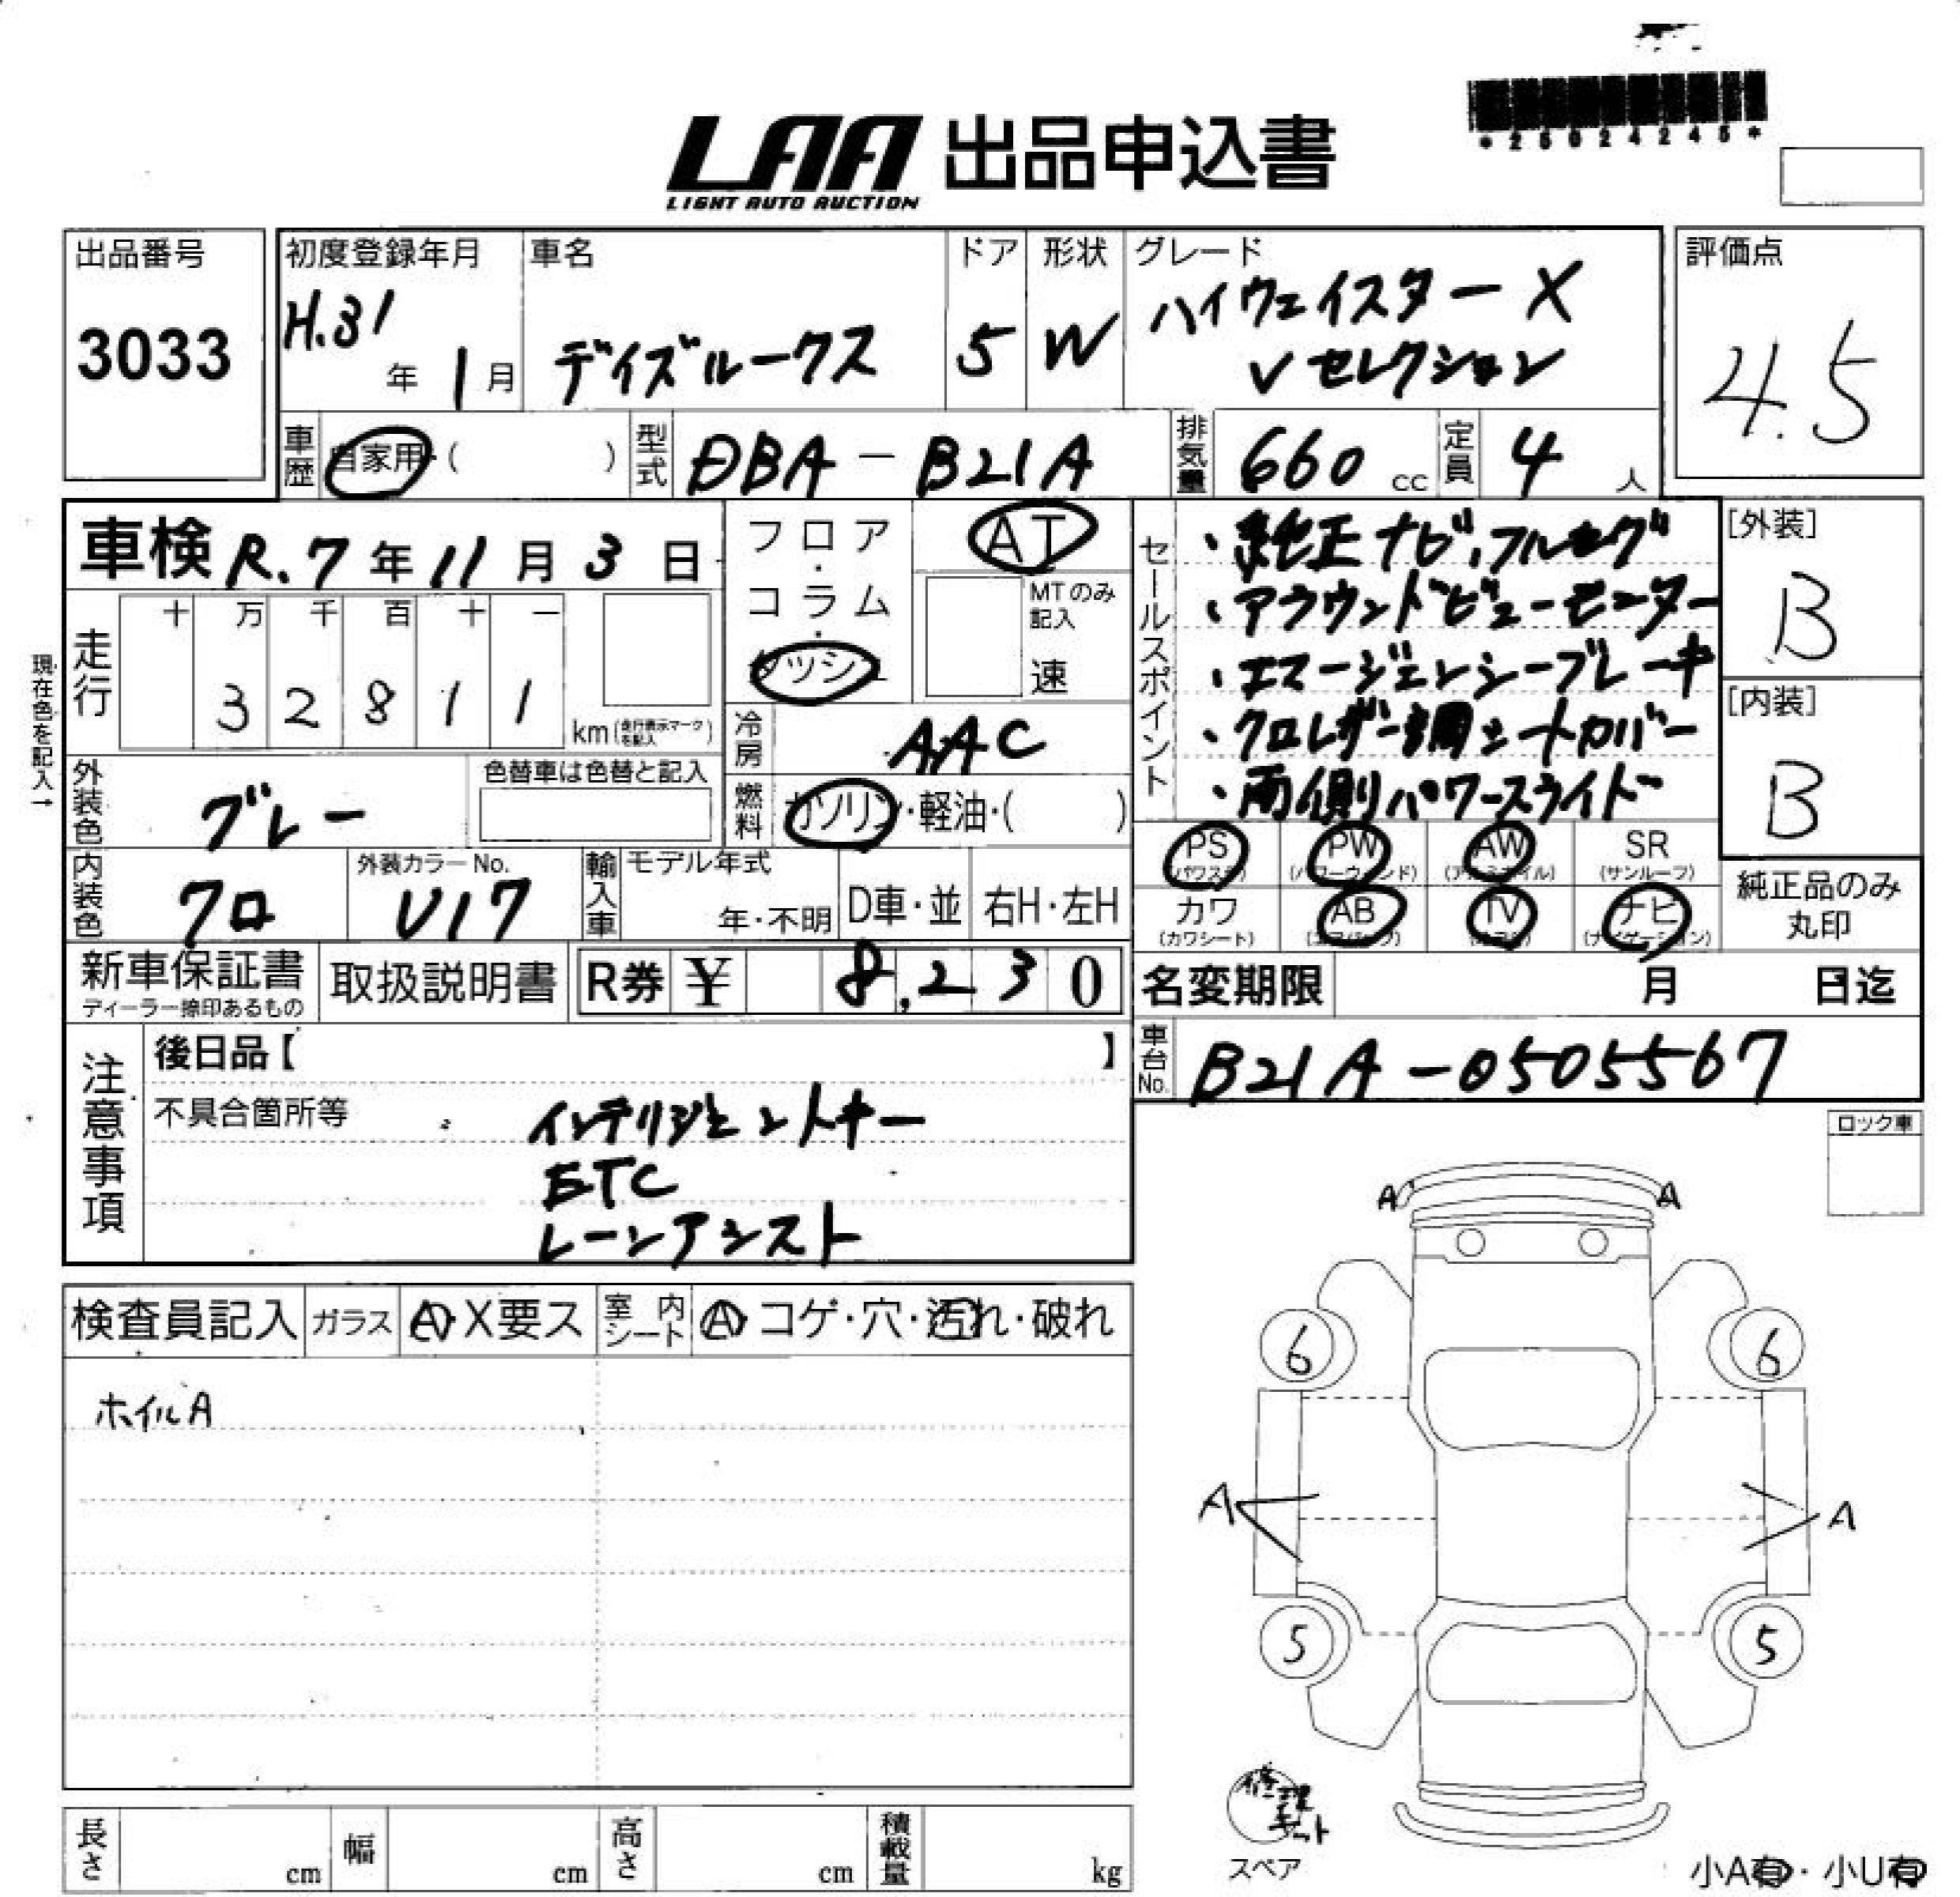 *25024245*
LAA 出品申込書
LIGHT AUTO AUCTION
出品番号
3033
初度登録年月
H.31年 1月
車名
デイズルークス
ドア
5
形状
W
グレード
ハイウェイスターX
Vセレクション
評価点
4.5
車歴 自家用・( )
型式 DBA-B21A
排気量 660cc
定員 4人
車検 R.7年11月3日
フロア・コラム・ダッシュ
AT
MTのみ記入
速
走行
十 万 千 百 十 一
3 2 8 1 1
km(走行表示マークを記入)
現在色を記入→
冷房 AAC
外装色 グレー
色替車は色替と記入
燃料 ガソリン・軽油・( )
内装色 クロ
外装カラーNo.
V17
輸入車
モデル年式
年・不明
D車・並
右H・左H
セールスポイント
・純正ナビ、フルセグ
・アラウンドビューモニター
・エマージェンシーブレーキ
・クロレザー調シートカバー
・両側パワースライド
[外装]
B
[内装]
B
PS (パワステ)
PW (パワーウィンド)
AW (アルミホイル)
SR (サンルーフ)
カワ (カワシート)
AB (エアバッグ)
TV (テレビ)
ナビ (ナビゲーション)
純正品のみ
丸印
新車保証書
ディーラー捺印あるもの
取扱説明書
R券 ¥ 8,230
名変期限 月 日迄
車台No. B21A-0505567
注意事項
後日品【 】
不具合箇所等
インテリジェントキー
ETC
レーンアシスト
ロック車
検査員記入 ガラス A・X要ス 室内シート A・コゲ・穴・汚れ・破れ
ホイルA
A A
6 6
A A
5 5
修理キット
スペア
長さ cm 幅 cm 高さ cm 積載量 kg
小A有・小U有